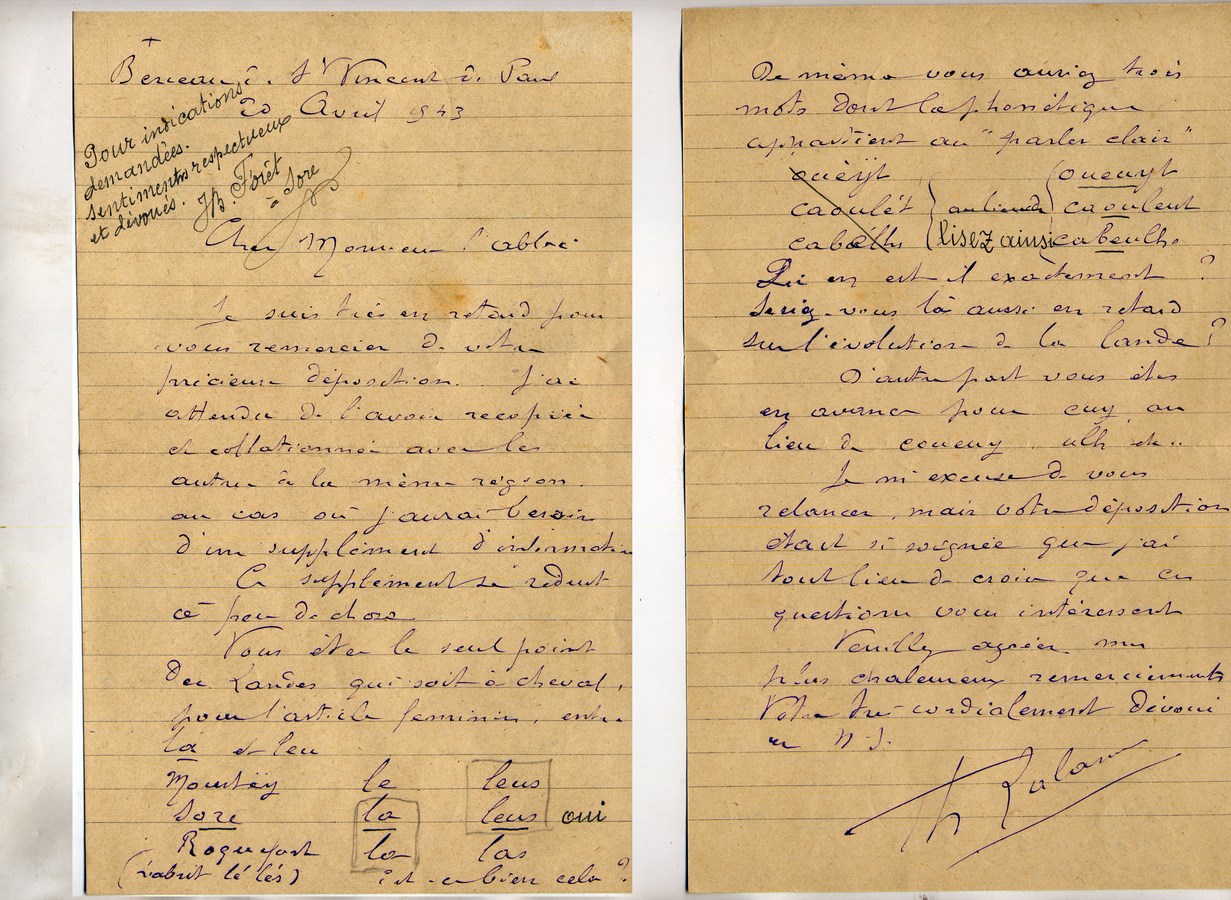 +
Berceau d. St Vincent d. Paul
20 Avril 1943
Pour indications
demandées.
sentiments respectueux
et dévoués. JB. Forêt
à Sore
Cher Monsieur l'abbé
Je suis très en retard pour
vous remercier de votre
précieuse déposition. J'ai
attendu de l'avoir recopiée
et collationnée avec les
autres de la même région.
au cas où j'aurai besoin
d'un supplément d'information
Ce supplément se réduit
à peu de chose
Vous êtes le seul point
des Landes qui soit à cheval,
pour l'article féminin, entre
la et leu
Moustey le leus
Sore la leus oui
Roquefort la las
( lé lés) Est-ce bien cela ?
De même vous auriez trois
mots dont la phonétique
appartient au "parler clair"
oueÿt
caoulét
cabélhs
au lieu de
lisez ainsi
oueuyt
caouleut
cabeulhs
Qu'en est il exactement ?
Seriez-vous là aussi en retard
sur l'évolution de la lande ?
D'autre part vous êtes
en avance pour cuy au
lieu de coueuy, ulh etc..
Je m'excuse de vous
relancer, mais votre déposition
était si soignée que j'ai
tout lieu de croire que ces
questions vous intéressent
Veuillez agréer mes
plus chaleureux remerciements
Votre très cordialement dévoué
en N. S.
Th Lalanne